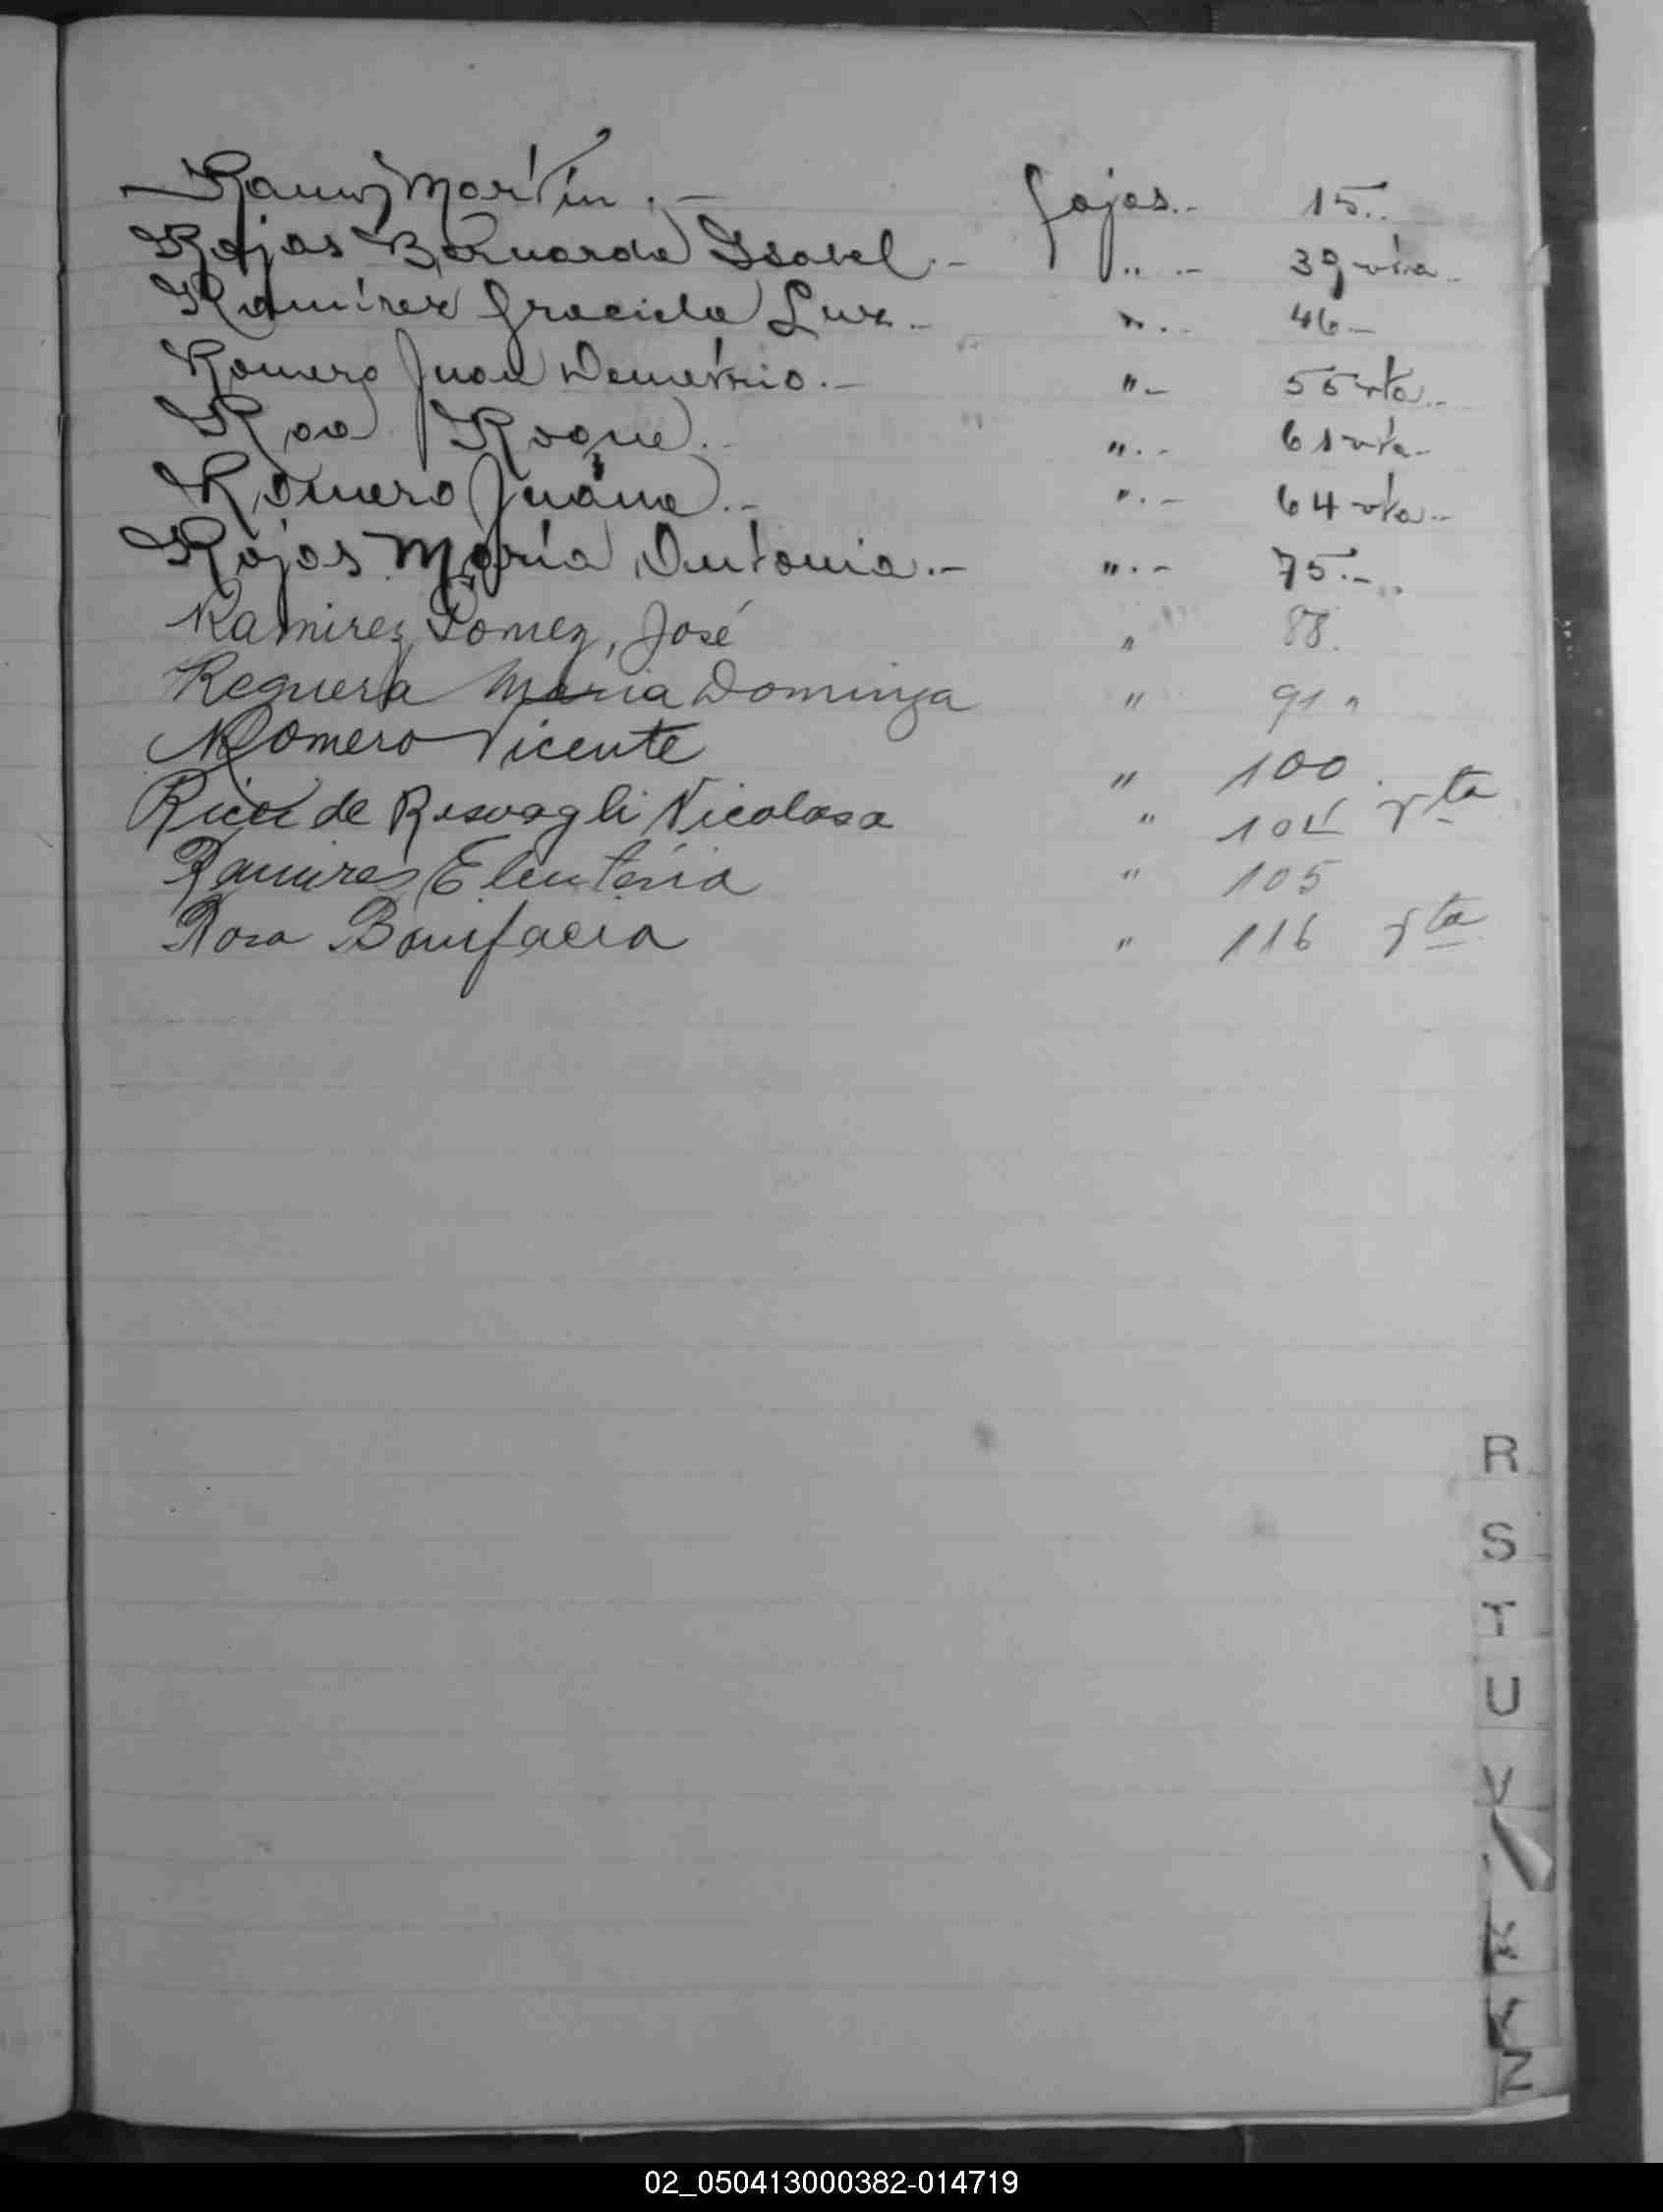 Ramos Martín.- fojas.- 15.-
Rojas Bernarda Isabel.- ".- 39 vta.-
Ramírez Graciela Luz.- ".- 46.-
Romero Juan Demetrio.- ".- 55 vta.-
Roa Roque.- ".- 61 vta.-
Romero Juana.- ".- 64 vta.-
Rojas María Antonia.- ".- 75.-
Ramirez Gomez, José " 88.
Reguera Maria Dominga " 91 "
Romero Vicente " 100.
Ricci de Nicolasa " vta
Ramires Eleuteria " 105
Rosa Bonifacia " 116 vta
R
S
T
U
V
Z
02_050413000382-014719